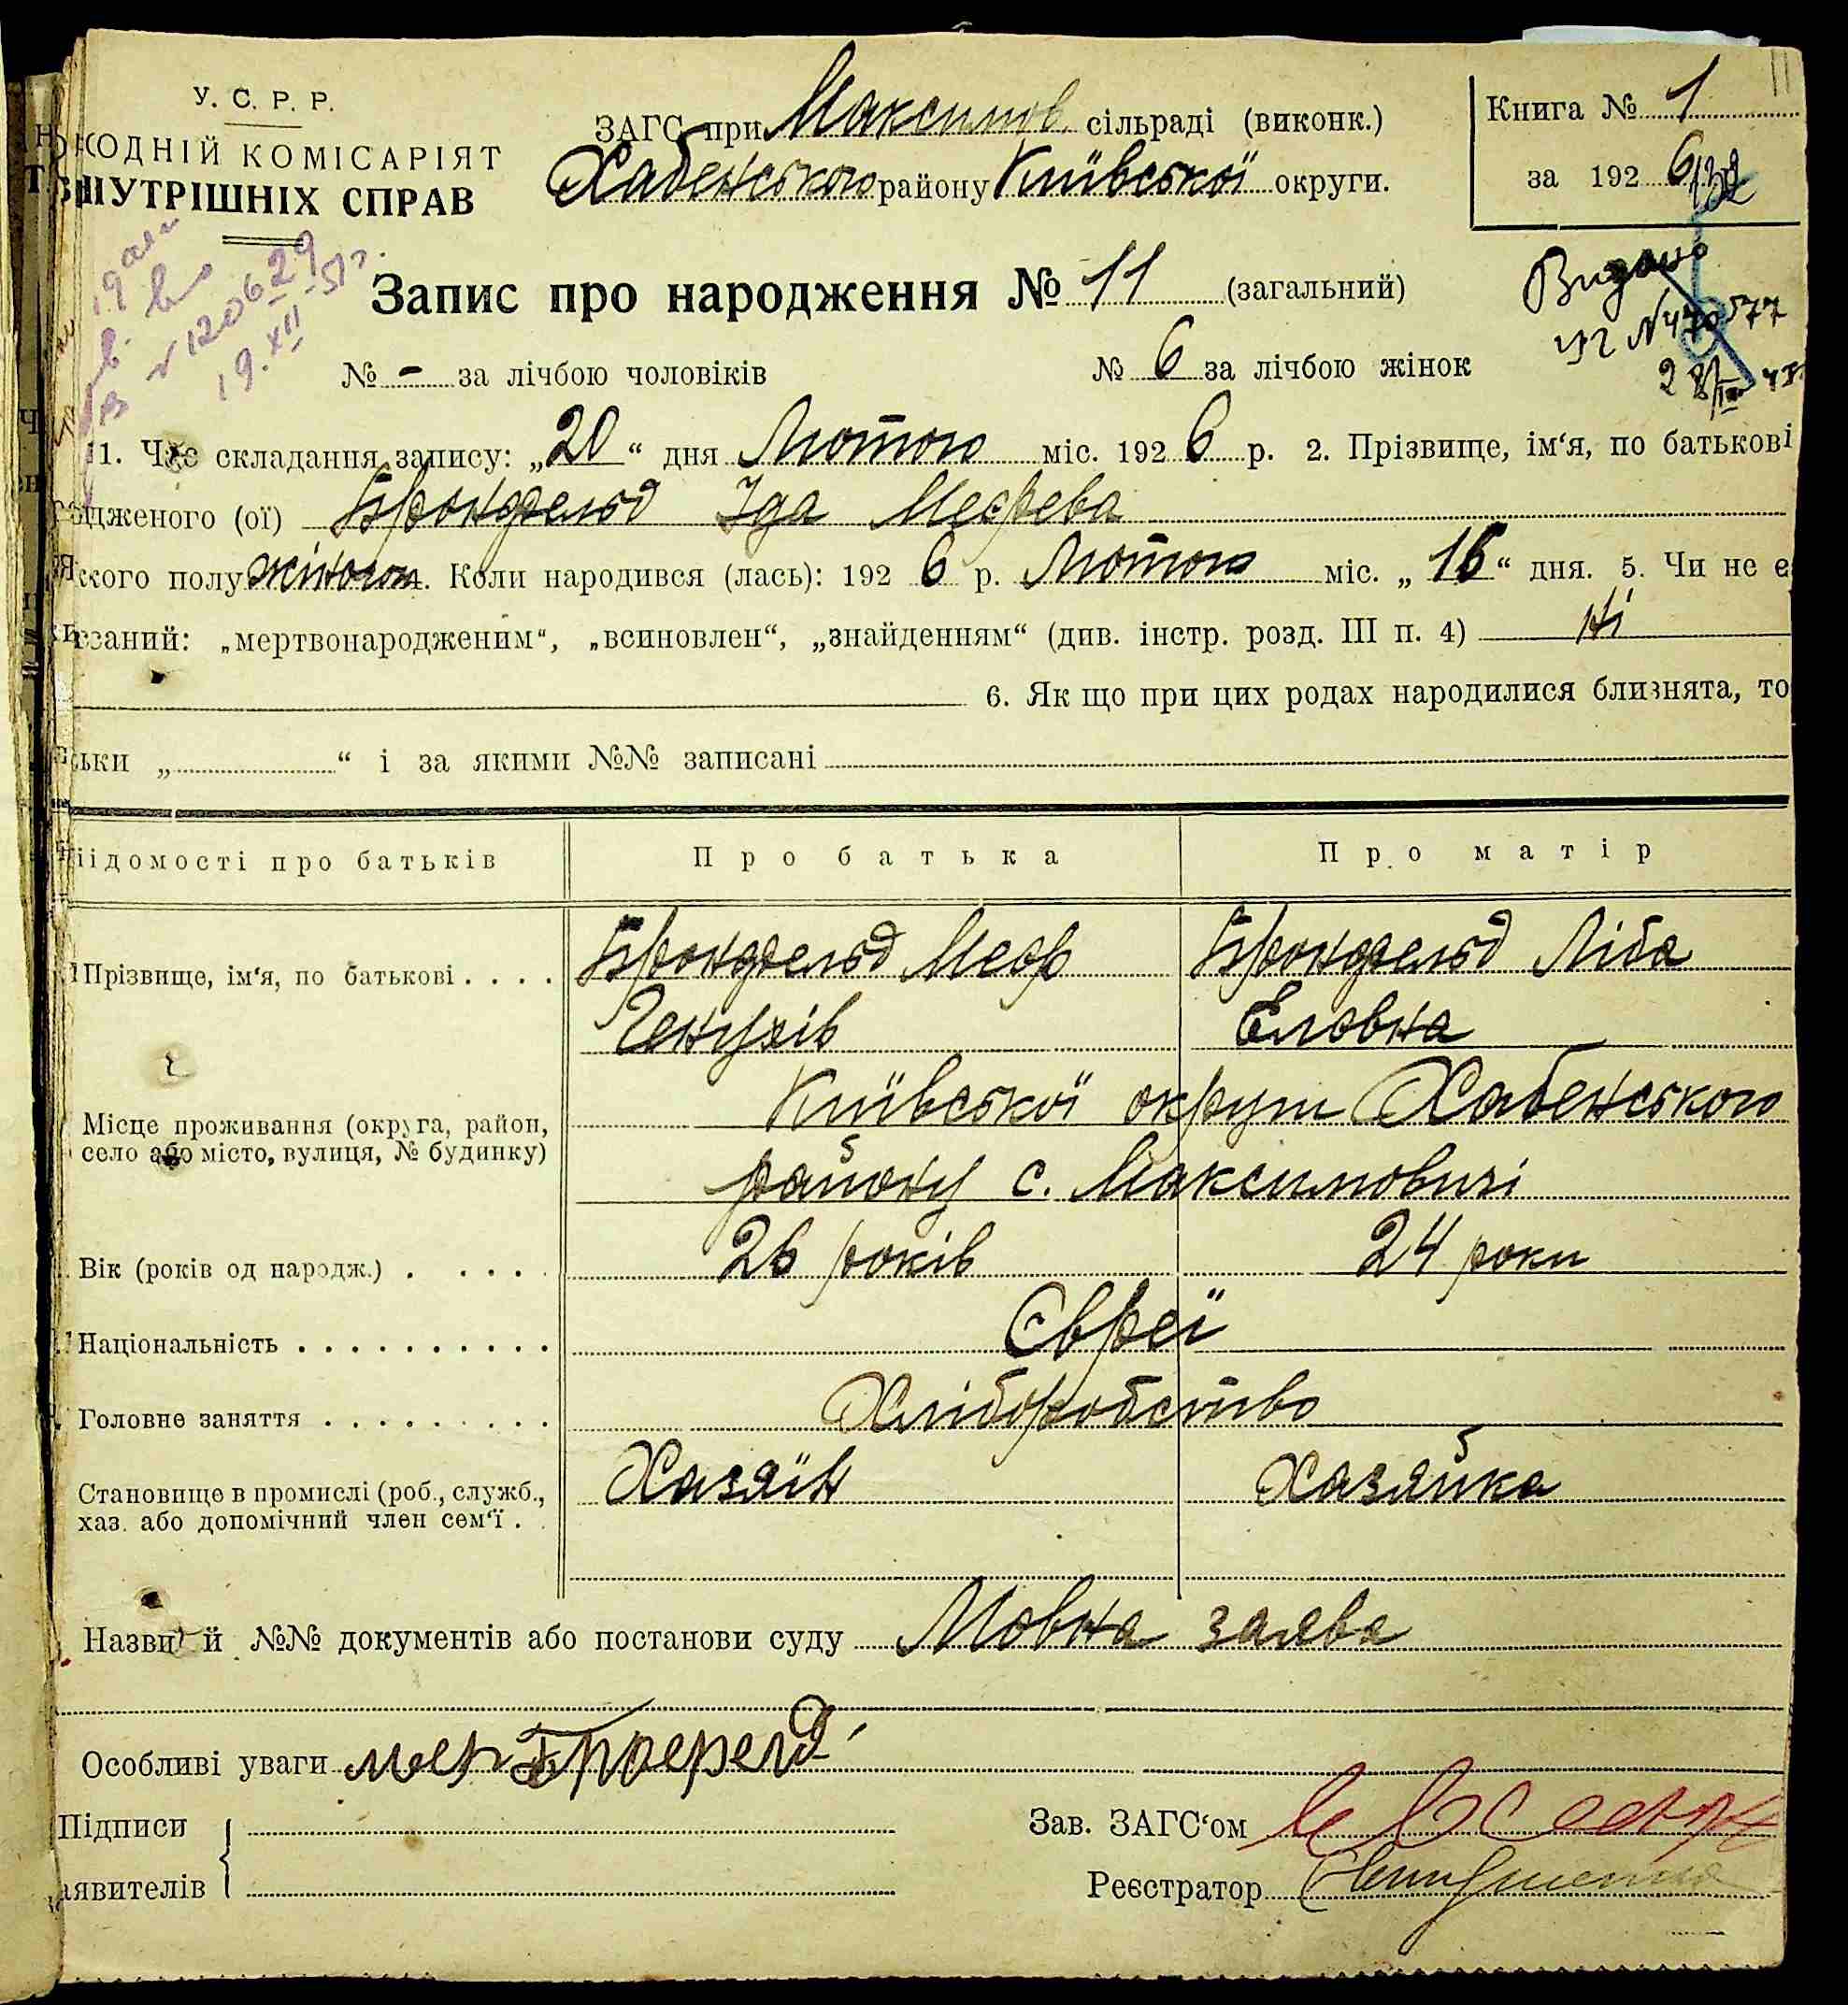 У. С. Р. Р.
ОДНІЙ КОМІСАРІЯТ
УТРІШНІХ СПРАВ
ЗАГС при Максимов. сільраді (виконк.)
Хабенського району Київської округи.
Книга № 1
за 192 6
Запис про народження № 11 (загальний)
№ - за лічбою чоловіків № 6 за лічбою жінок
Видано
28
19.XII
1. Час складання запису: „20“ дня Лютого міс. 192 6 р. 2. Прізвище, ім‘я, по батькові
дженого (ої) Бронфельд Іда Меєрева
кого полу жіночого. Коли народився (лась): 192 6 р. Лютого міс. „16“ дня. 5. Чи не є
заний: „мертвонародженим“, „всиновлен“, „знайденням“ (див. інстр. розд. III п. 4) Ні
6. Як що при цих родах народилися близнята, то
ьки „ “ і за якими №№ записані
ідомості про батьків Про батька Про матір
Прізвище, ім‘я, по батькові . . . . Бронфельд Меєр Бронфельд Ліба
Генухів Еловна
Місце проживання (округа, район, село або місто, вулиця, № будинку) Київської округи Хабенського
району с. Максимовичі
Вік (років од народж.) . . . . . 26 років 24 роки
Національність . . . . . . . . . . Євреї
Головне заняття . . . . . . . . . Хліборобство
Становище в промислі (роб., служб., Хазяїн Хазяйка
хаз. або допомічний член сем‘ї .
Назви й №№ документів або постанови суду Мовна заява
Особливі уваги
Підписи
аявителів
Зав. ЗАГС‘ом
Реєстратор